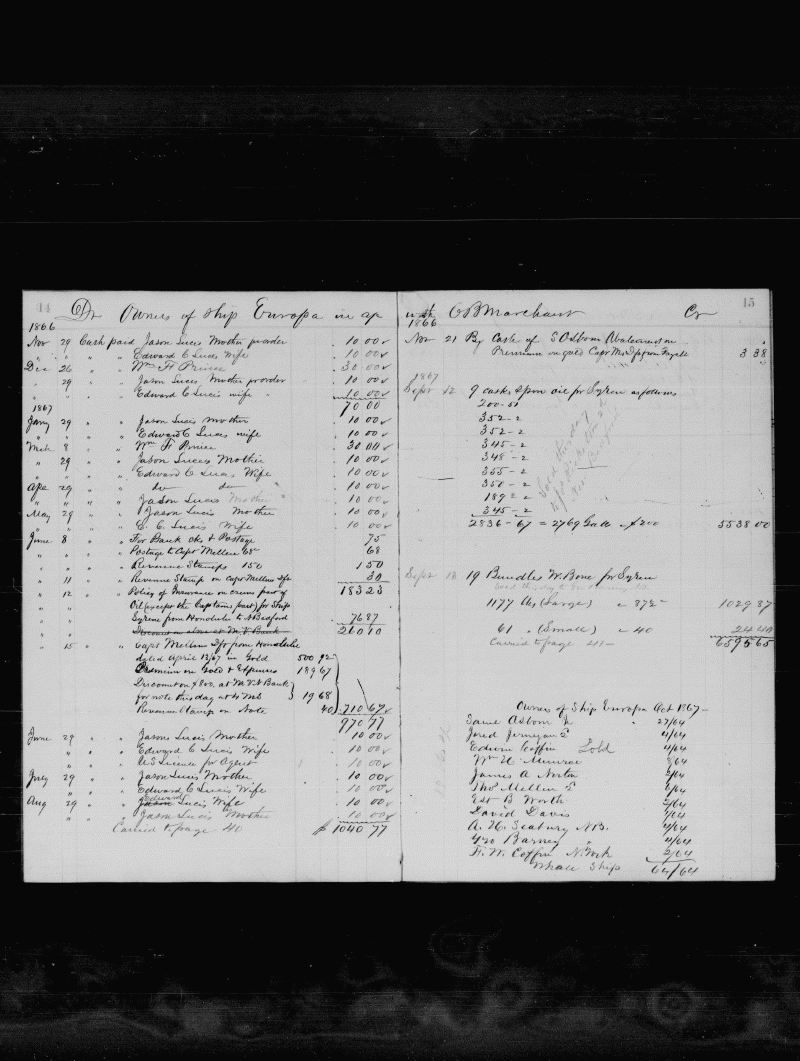 14 Dr Owners of Ship Europa in ap
1866
Nov 29 Cash paid Jason Luces Mother provder 10 00
" " " " Edward C Luces Wife 10 00
Dec 26 " " Wm F Prince 30 00
" 29 " " Jason Luces Mother provder 10 00
" " " Edward C Luces wife " 10 00
70 00
1867
Jany 29 " " Jason Luces Mother 10 00
" " " " Edward C Luces wife 10 00
Mch 8 " " Wm F Prince 30 00
" 29 " " Jason Luces Mother 10 00
" " " " Edward C Luces Wife 10 00
Ape 29 " " do do 10 00
" " " " Jason Luces Mother 10 00
May 29 " " Jason Luces Mother 10 00
" " " " E. C. Luces Wife 10 00
June 8 " " For Bank cks & Postage 75
" " " " Postage to Capt Mellen 68 68
" " " " Revenue Stamps 150 1 50
" 11 " " Revenue Stamp on Capt Mellens Dft 30
" 12 " " Policy of Insurance on crews part of 183 23
" " Oil (except the Captains part) for Ship
" " Syren from Honolulu to N Bedford 76 87
" " Discount on above at M. V. Bank 260 10
" 15 " " Capt Mellens Dft from Honolulu
dated April 13/67 in Gold 500 92
Premium on Gold & Expenses 189 67
Discount on $800. at M. V. N Bank
for note this day at 4 Mos 19 68
Revenue Stamp on Note 40 710 67
970 77
June 29 " " Jason Luces Mother 10 00
" " " " Edward C Luces Wife 10 00
" " " " US License for Agent 10 00
July 29 " " Jason Luces Mother 10 00
" " " " Edward C Luces Wife 10 00
Edward
Aug 29 " " Jason Luces Wife 10 00
" " Jason Luces Mother 10 00
Carried to page 40 $ 1040 77
with C B Marchant Cr 15
1866
Nov 21 By Cash of S Osborn
Premium on gold Capt Ms Dft from Fayall 3 38
1867
Sept 12 9 casks spm oil for Syren as follows
200 - 51
352 - 2
352 - 2
345 - 2
348 - 2
355 - 2
350 - 2
189 - 2
345 - 2
Sold this day
2836 - 67 = 2769 Galls $200 5538 00
Sept 18 19 Bundles W. Bone for Syren
1177 lbs (Large) 87½ 1029 87
61 " (Small) 40 24 40
Carried to page 41 6595 65
Owners of Ship Europa Oct 1867
Saml Osborn Jr " 27/64
Jared Jernegan 2d 4/64
Edwin Coffin Sold 4/64
Wm H Munroe 8/64
James A Norton 2/64
Thos Mellen 2d 2/64
Est B Worth 2/64
David Davis 1/64
A. H. Seabury N.B. 4/64
Geo Barney " 4/64
F. W. Coffin N. York 2/64
Whole Ship 64/64